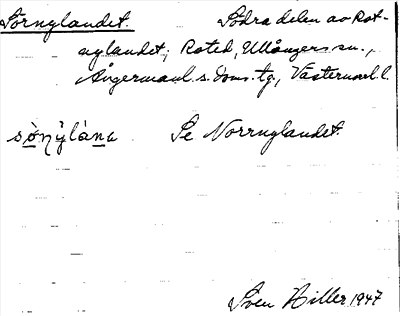 Sörnylandet. Södra delen av Rot-
nylandet; Roted, Ullångers sn.,
Ångermanl. s. doms. tg., Västernorrl. l.
sònỳlàna Se Norrnylandet.
Sven Hiller 1947